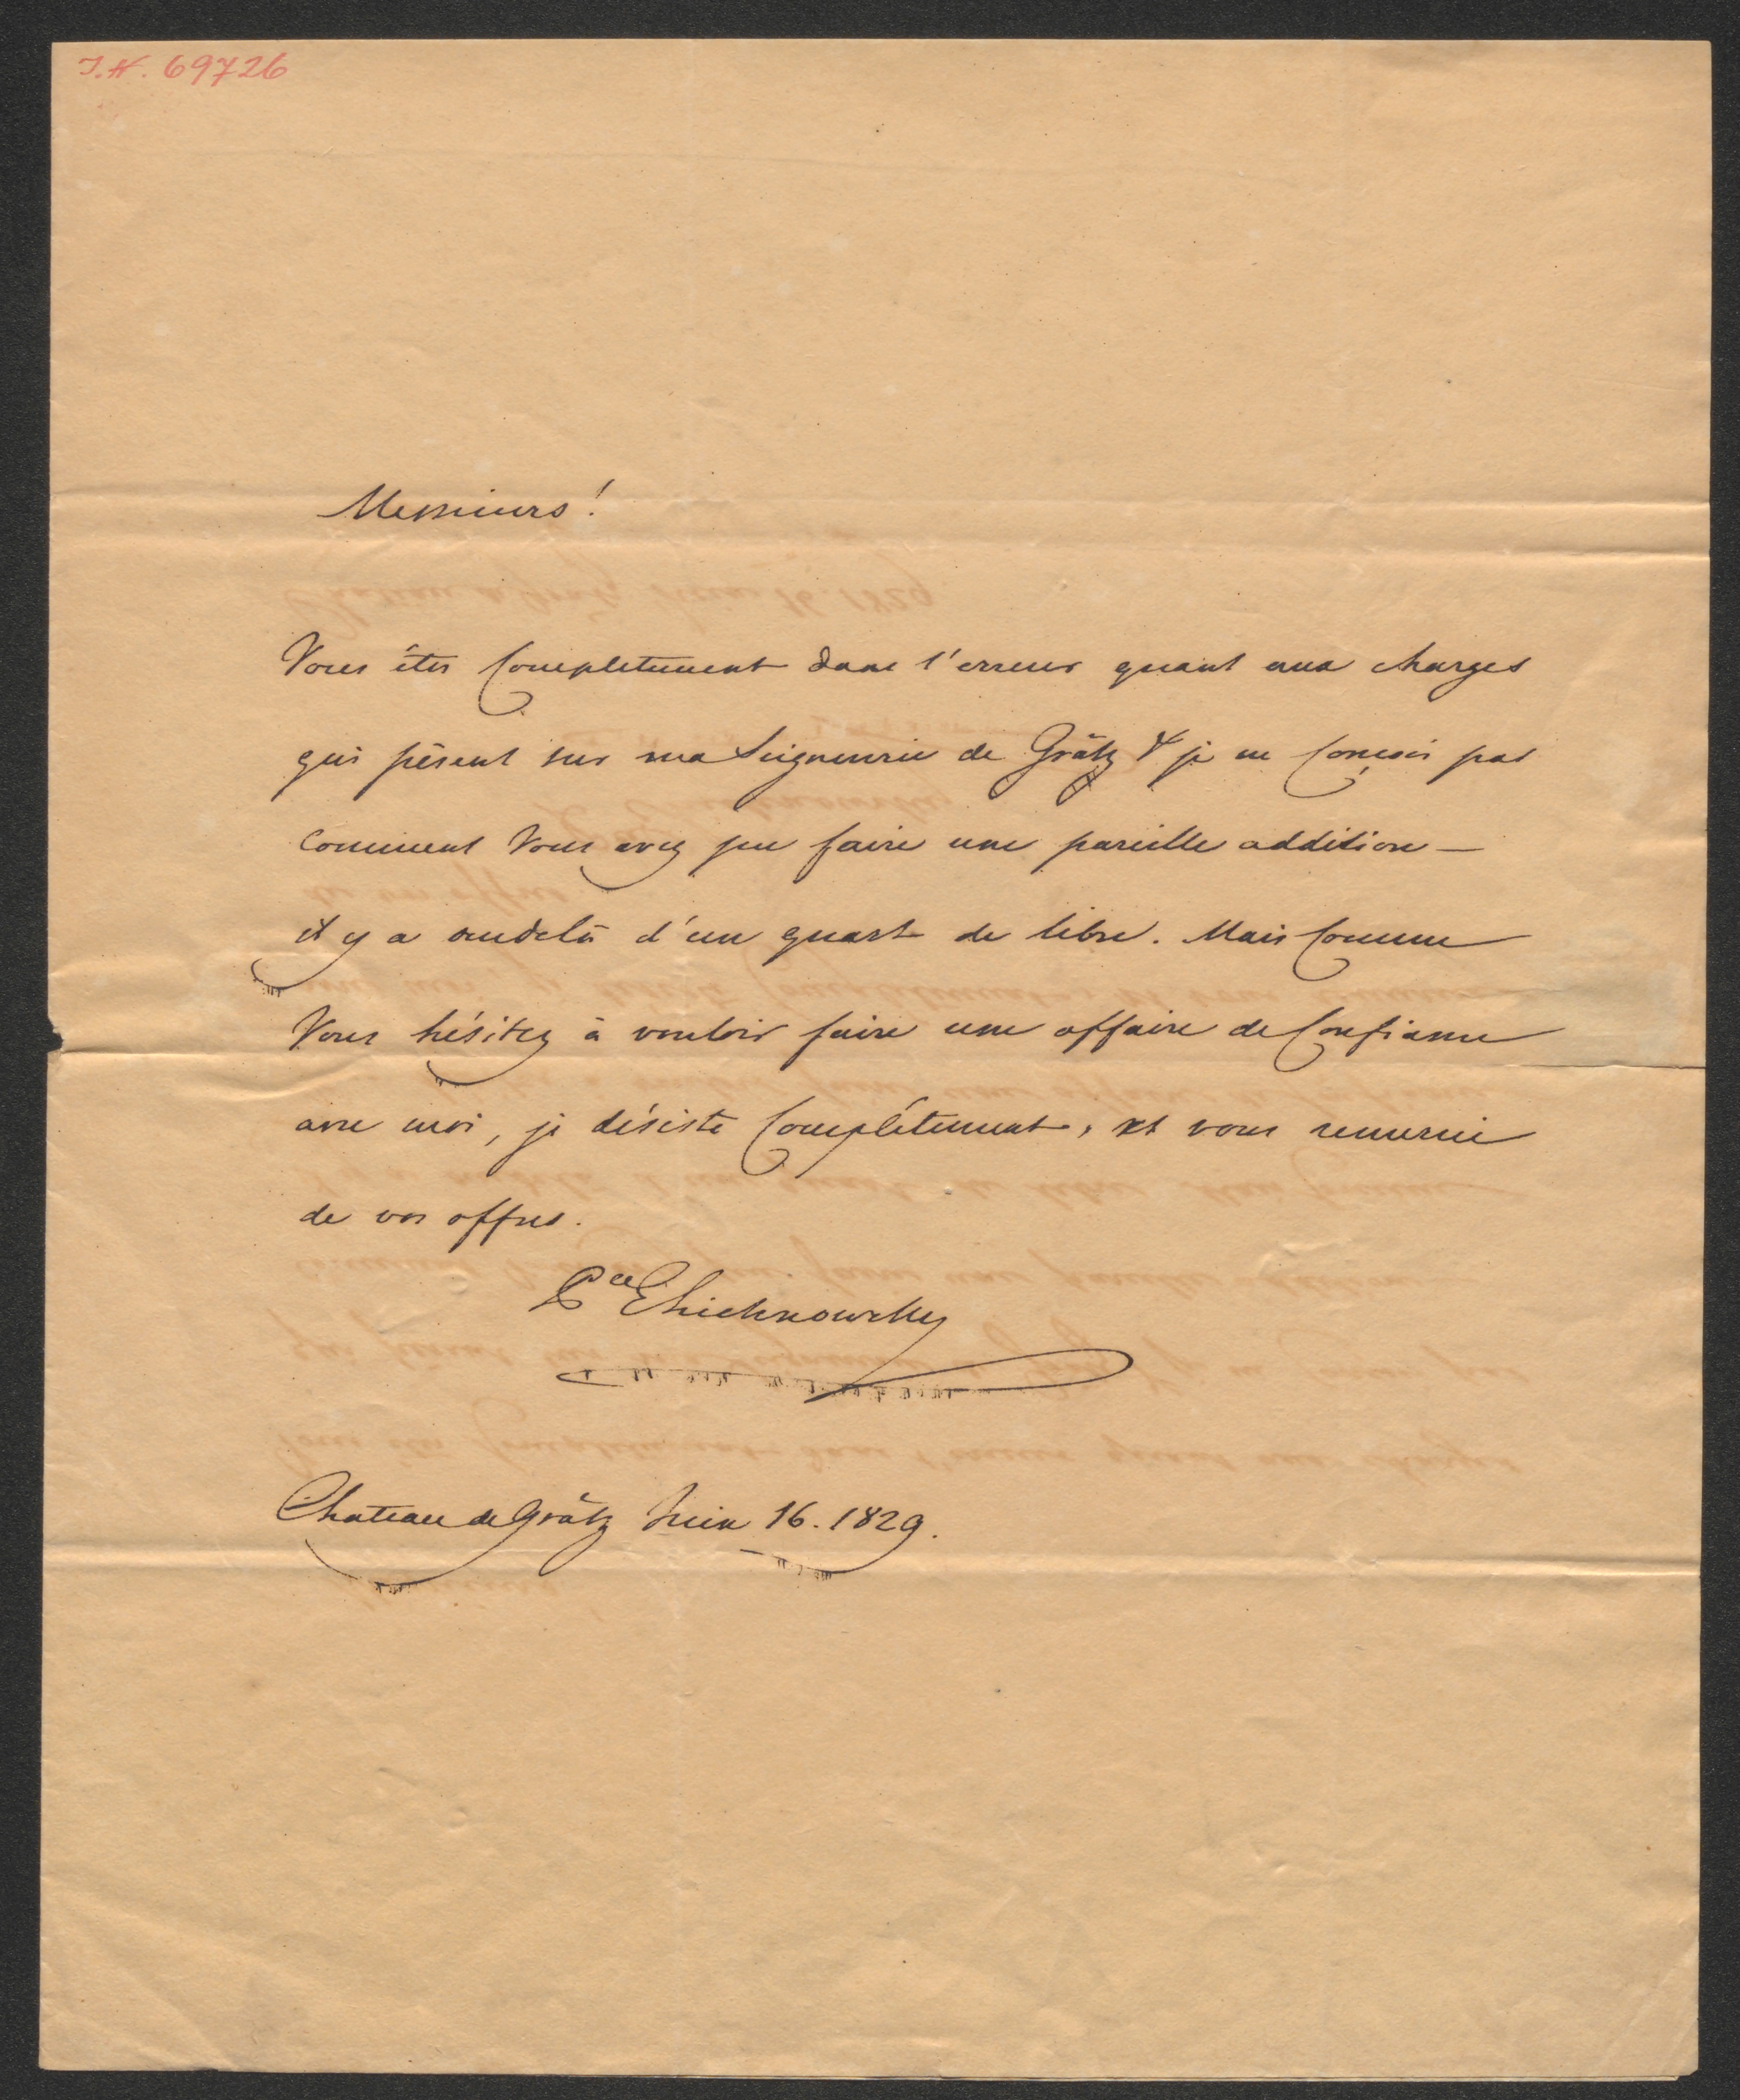 I.N. 69726
Messieurs!
Vous êtes Completement dans l'erreur quant aux charges
qui pèsent sur ma Seigneurie de Grätz & je ne Conçois pas
comment Vous avez pu faire une pareille addition —
il y a audelà d'un quart de libre. Mais Comme
Vous hésitez à vouloir faire une affaire de Confiance
avec moi, je désiste Complétement, et vous remercie
de vos offres.
Pce ELichnowsky
Chateau de Grätz Juin 16. 1829.